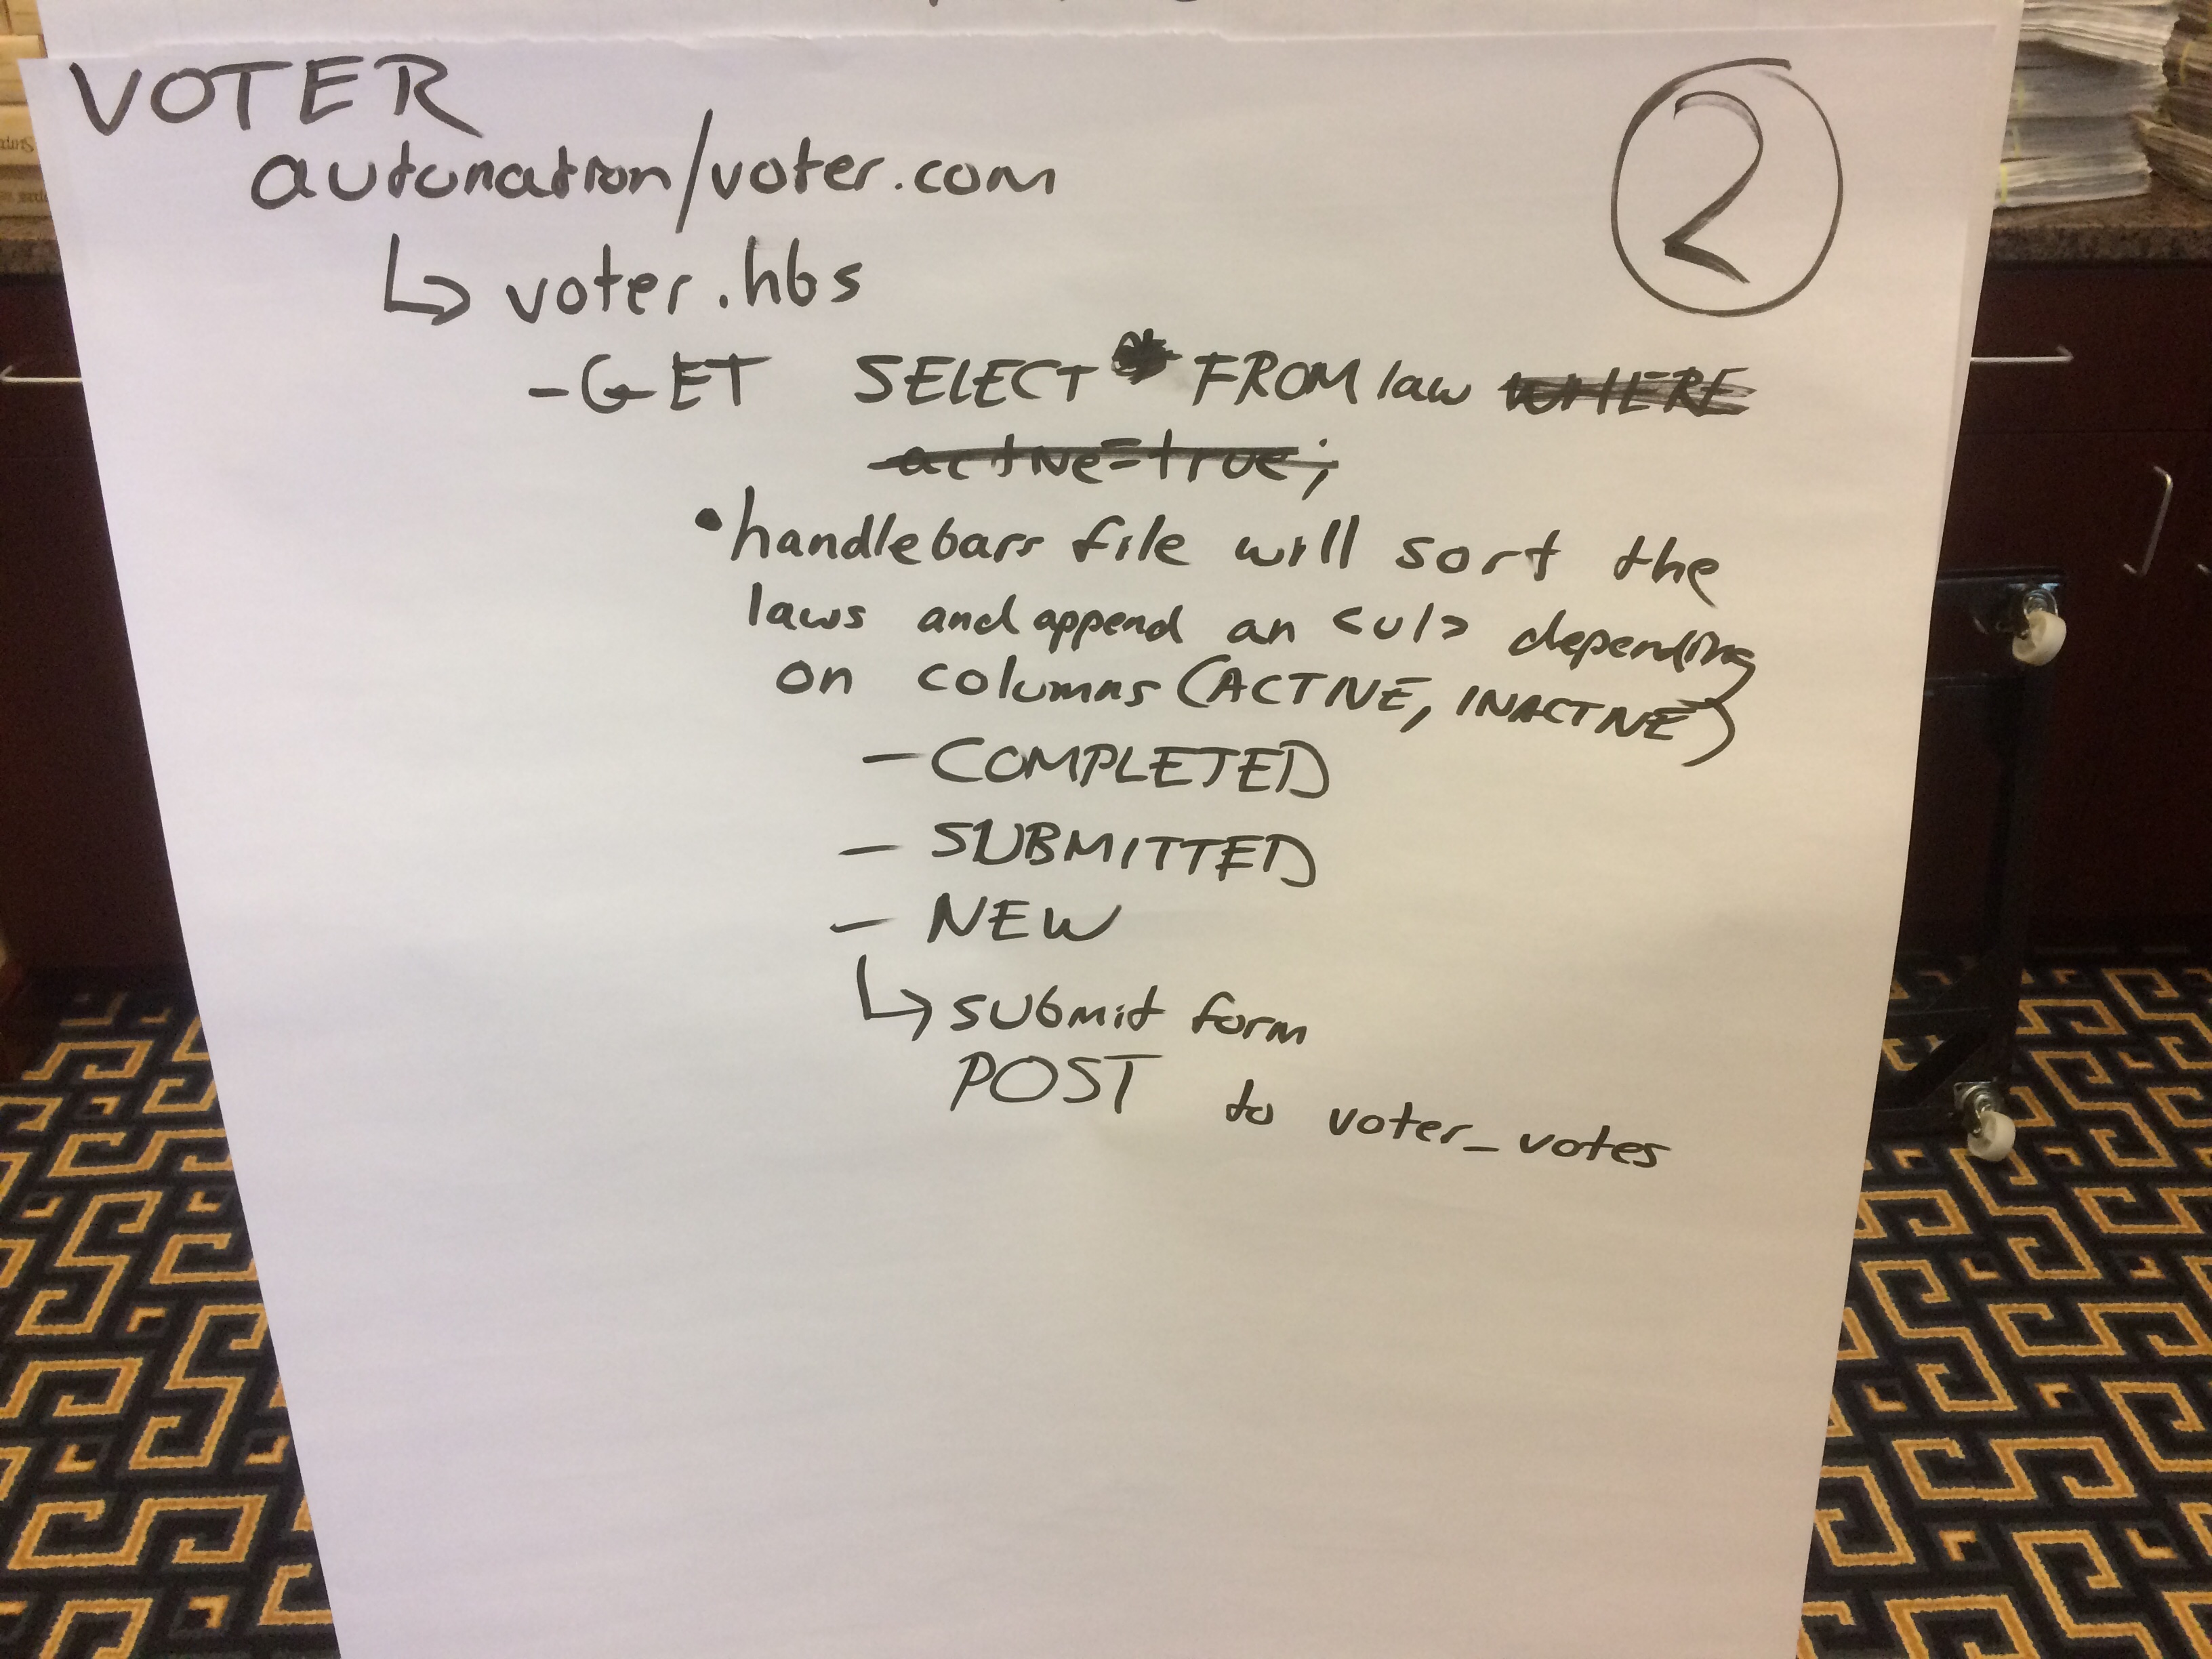 VOTER
②
autonation/voter.com
↳ voter.hbs
-GET SELECT * FROM law WHERE
active=true;
•handlebars file will sort the
laws and append an <ul> depending
on columns (ACTIVE, INACTIVE)
- COMPLETED
- SUBMITTED
- NEW
↳ submit form
POST to voter_votes